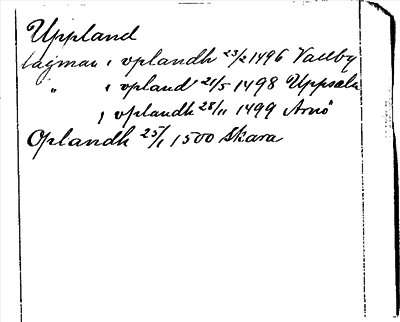 Uppland
lagman i vplandh 23/2 1496 Valby
" i vpland 21/5 1498 Uppsala
i vplandh 28/11 1499 Arnö
Oplandh 25/1 1500 Skara